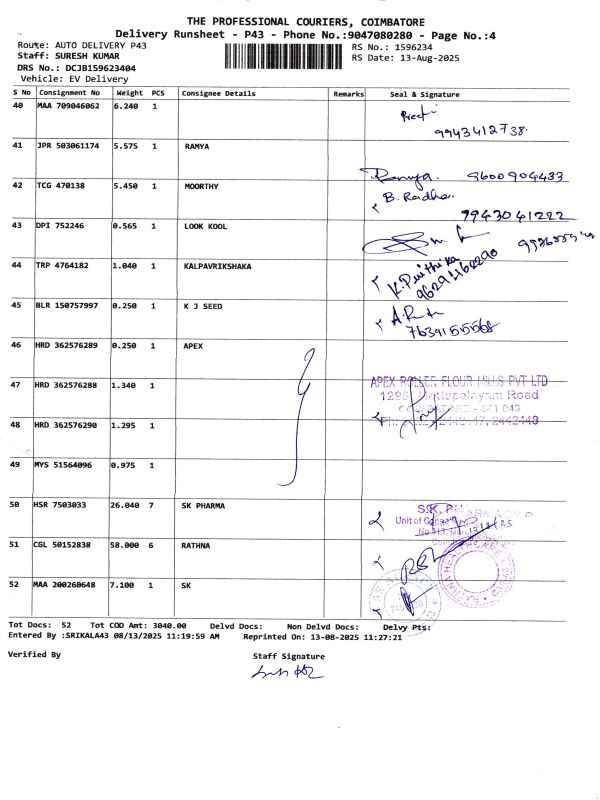 THE PROFESSIONAL COURIERS, COIMBATORE
Delivery Runsheet - P43 - Phone No.:9047080280 - Page No.:4
Route: AUTO DELIVERY P43 RS No.: 1596234
Staff: SURESH KUMAR RS Date: 13-Aug-2025
DRS No.: DCJB159623404
Vehicle: EV Delivery
S No Consignment No Weight PCS Consignee Details Remarks Seal & Signature
40 MAA 709046062 6.240 1
9943412738.
41 JPR 503061174 5.575 1 RAMYA
Ramya. 9600904433
42 TCG 470138 5.450 1 MOORTHY B. Radha.
7943041222
43 DPI 752246 0.565 1 LOOK KOOL
44 TRP 4764182 1.040 1 KALPAVRIKSHAKA
45 BLR 150757997 0.250 1 K J SEED
46 HRD 362576289 0.250 1 APEX
47 HRD 362576288 1.340 1 APEX ROLLER FLOUR MILLS PVT LTD
Road
48 HRD 362576290 1.295 1
49 MYS 51564096 0.975 1
50 HSR 7503033 26.040 7 SK PHARMA S.K.
Unit of
51 CGL 50152838 58.000 6 RATHNA
52 MAA 200260648 7.100 1 SK
Tot Docs: 52 Tot COD Amt: 3040.00 Delvd Docs: Non Delvd Docs: Delvy Pts:
Entered By :SRIKALA43 08/13/2025 11:19:59 AM Reprinted On: 13-08-2025 11:27:21
Verified By Staff Signature